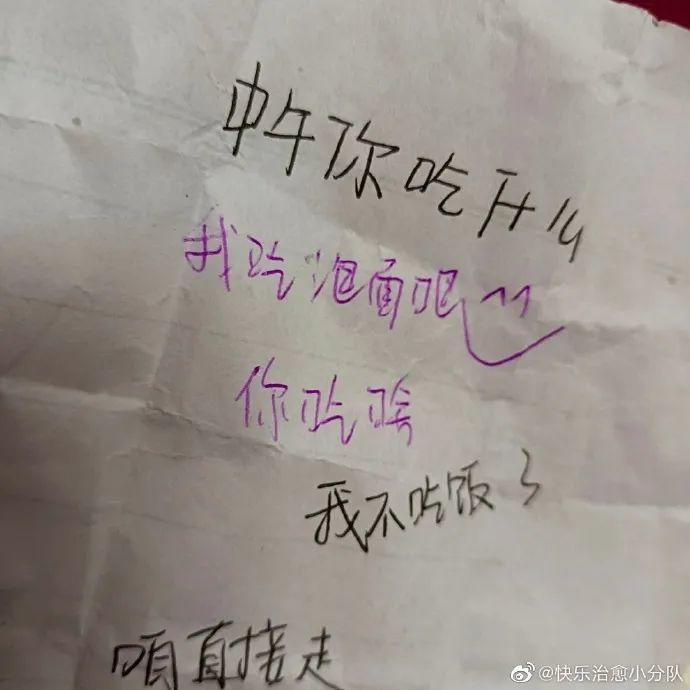 中午你吃什么
我吃泡面吧^^
你吃啥
我不吃饭了
咱直接走
@快乐治愈小分队